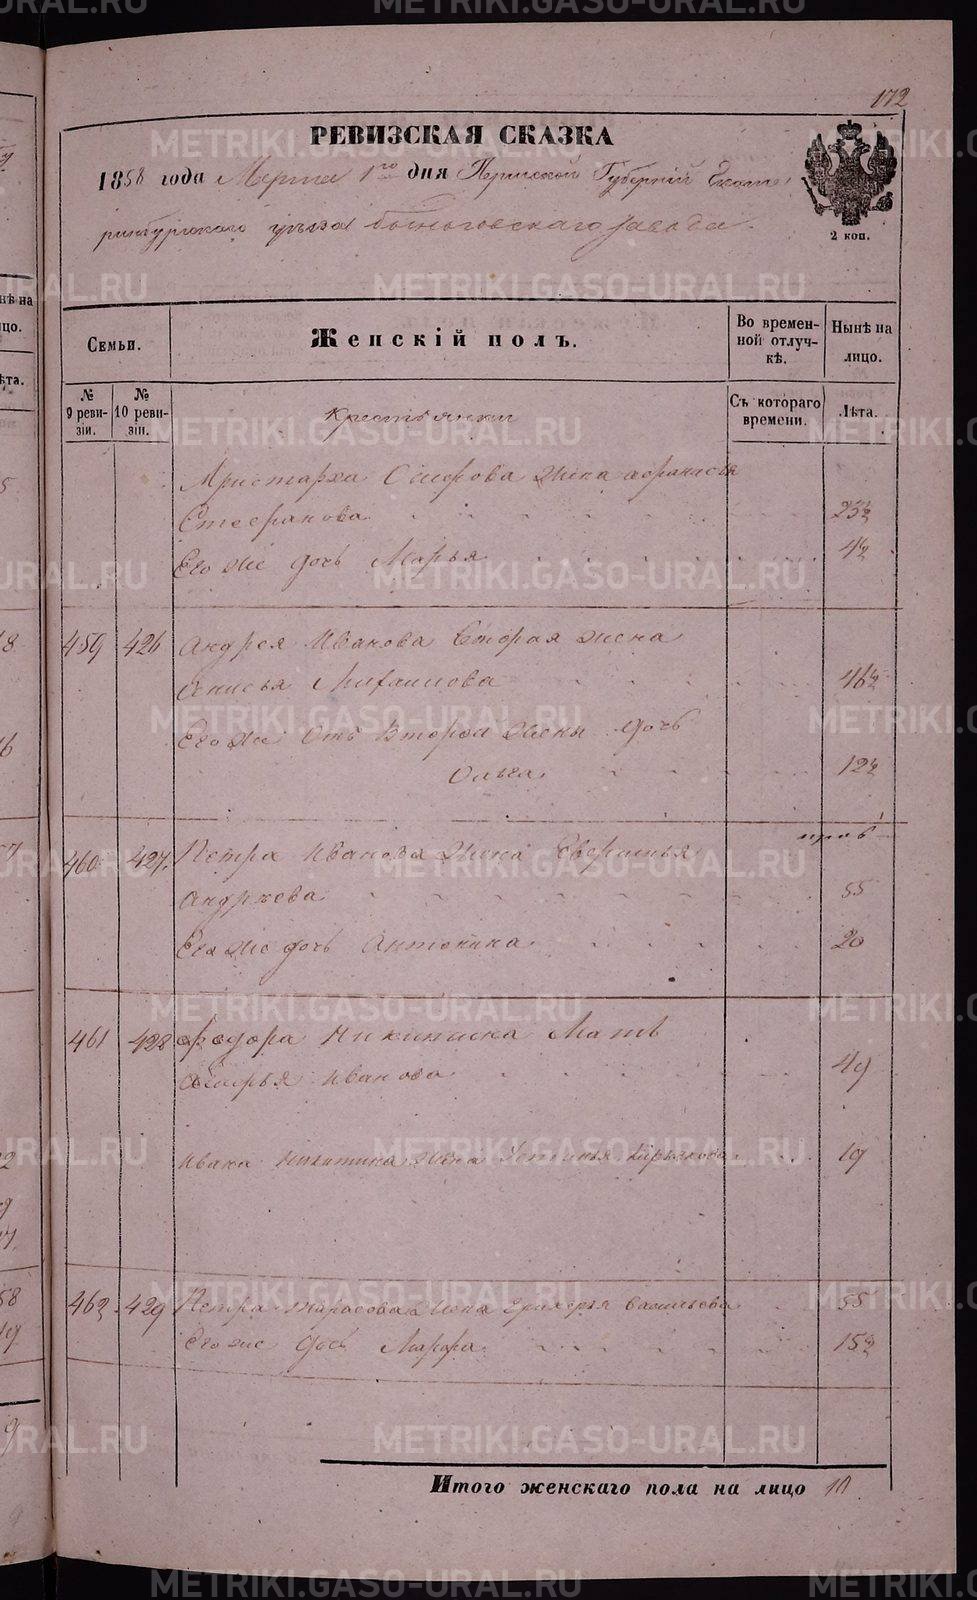 172
РЕВИЗСКАЯ СКАЗКА
1858 года Марта 1го дня Пермской Губерніи Екате
ринбургскаго уѣзда завода.
2 коп.
Семьи.
Женскій полъ.
Во времен-
ной отлуч-
кѣ.
Нынѣ на
лицо.
№
9 реви-
зіи.
№
10 реви-
зіи.
Съ котораго
времени.
Лѣта.
Крестьянки
Аристарха жена Афанасья
Стефанова 23½
Его же дочь Марья 4½
459 426 Андрея Иванова Вторая жена
Анисья Михаилова 46½
Его же Отъ Второй жены дочь
Ольга 12½
460 427 Петра Иванова жена
Андреева 55
Его же дочь Антонина 20
461 428 Федора Никитина Мать
Агафья Иванова 49
Ивана Никитина жена Устинья 19
462 429 Петра Тарасова жена Васильева 55
Его же дочь Марфа 15½
Итого женскаго пола на лицо 10
METRIKI.GASO-URAL.RU